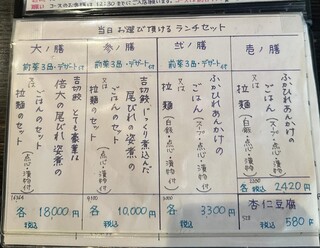 当日お選び頂けるランチセット
壱ノ膳
ふかひれあんかけの
ごはん(スープ・点心・漬物)
又は
拉麺(白飯・点心・漬物)
2200
各 税込 2420円
杏仁豆腐
528
税込 580円
弐ノ膳
前菜3品・デザート付
ふかひれあんかけの
ごはん(スープ・点心・漬物)
又は
拉麺(白飯・点心・漬物)
3000
各 税込 3300円
参ノ膳
前菜3品・デザート付
吉切鮫 じっくり煮込んだ
尾びれの姿煮の
ごはんのセット
又は
拉麺のセット(点心・漬物付)
各 税込 10,000円
大ノ膳
前菜3品・デザート付
吉切鮫 とても豪華は
倍大の尾びれ姿煮の
ごはんのセット
又は
拉麺のセット(点心・漬物付)
各 税込 18,000円